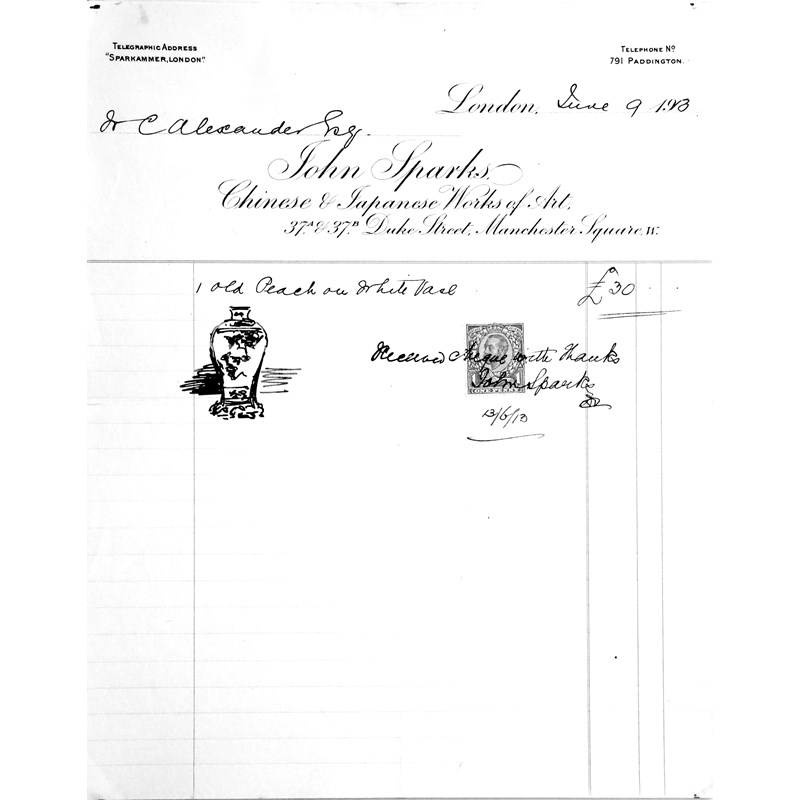 Telegraphic Address
"Sparkammer, London".
Telephone No
791 Paddington.
London, June 9 1913
W C Alexander Esq.
John Sparks,
Chinese & Japanese Works of Art,
37A & 37B Duke Street, Manchester Square, W.
1 old Peach on White Vase £30
Received cheque with Thanks
John Sparks
13/6/13